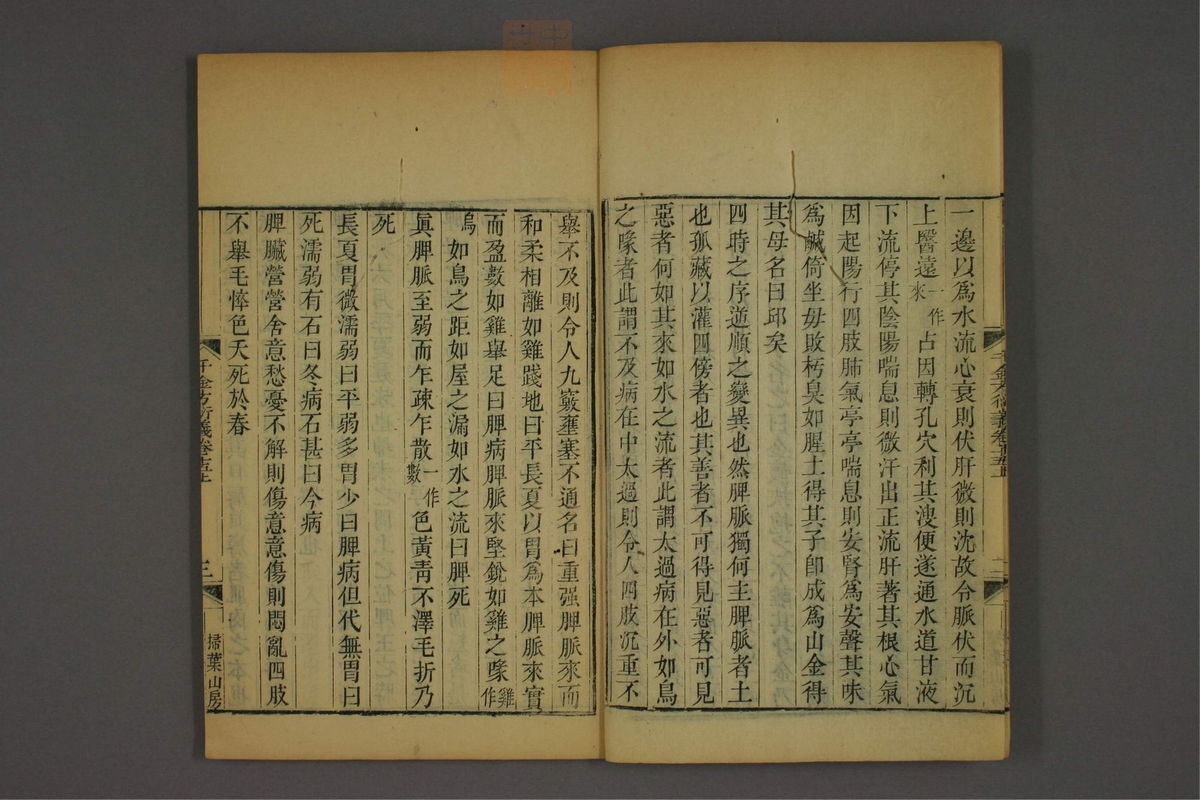 一邊以爲水流心衰則伏肝微則沈故令脈伏而沉
上醫遠一作來占因轉孔穴利其溲便遂通水道甘液
下流停其陰陽喘息則微汗出正流肝著其根心氣
因起陽行四肢肺氣亭亭喘息則安腎爲安聲其味
爲鹹倚坐毋敗杇臭如腥土得其子卽成爲山金得
其母名曰邱矣
四時之序逆順之變異也然脾脈獨何主脾脈者土
也孤藏以灌四傍者也其善者不可得見惡者可見
惡者何如其來如水之流者此謂太過病在外如鳥
之喙者此謂不及病在中太過則令人四肢沉重不
千金方衍義卷十五上
舉不及則令人九竅壅塞不通名曰重强脾脈來而
和柔相離如雞踐地曰平長夏以胃爲本脾脈來實
而盈數如雞舉足曰脾病脾脈來堅銳如雞之喙雞作
烏如鳥之距如屋之漏如水之流曰脾死
眞脾脈至弱而乍疎乍散一作數色黃靑不澤毛折乃
死
長夏胃微濡弱曰平弱多胃少曰脾病但代無胃曰
死濡弱有石曰冬病石甚曰今病
脾臟營營舍意愁憂不解則傷意意傷則悶亂四肢
不舉毛悴色夭死於春
千金方衍義卷十五上
三
掃葉山房